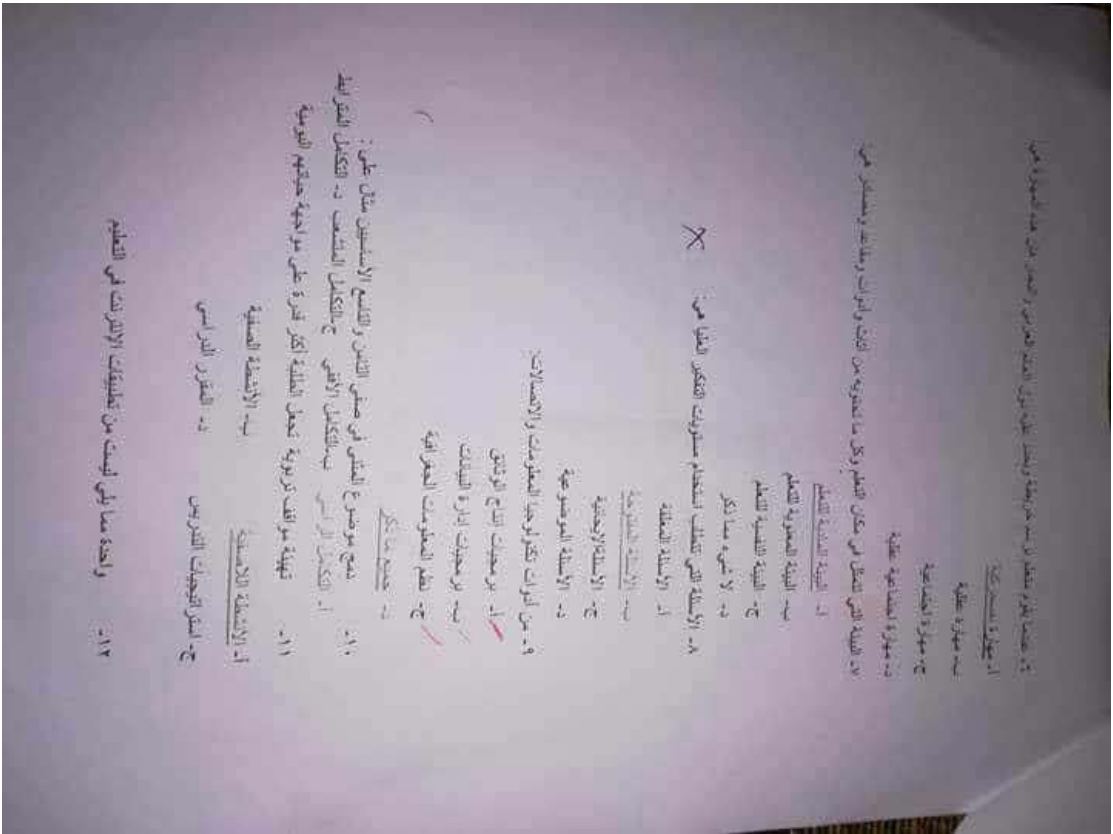 ٦- عندما يقوم المتعلم برسم خريطة ويحدد عليها دول العالم العربي والبحر فإن هذه المهارة هي:
أ- مهارة نفسحركية
ب- مهارة عقلية
ج- مهارة اجتماعية
د- مهارة اجتماعية عقلية
٧- البيئة التي تتمثل في مكان التعلم وكل ما تحتويه من أثاث وأدوات ومقاعد وهي:
أ- البيئة المادية للتعلم
ب- البيئة المعنوية للتعلم
ج- البيئة النفسية للتعلم
د- لا شيء مما ذكر
٨- الأسئلة التي تتطلب استخدام مستويات التفكير العليا هي:
أ- الأسئلة المغلقة
ب- الأسئلة المفتوحة
ج- الأسئلة الإجابية
د- الأسئلة الموضوعية
٩- من أدوات تكنولوجيا المعلومات والاتصالات:
أ- برمجيات إنتاج الوثائق
ب- برمجيات إدارة البيانات
ج- نظم المعلومات الجغرافية
د- جميع ما ذكر
١٠- دمج موضوع المثلث في صفي الثامن والتاسع الأساسيين مثال على:
أ- التكامل الرأسي ب- التكامل الأفقي ج- التكامل المتشعب د- التكامل المترابط
١١- تهيئة مواقف تربوية تجعل الطلبة أكثر قدرة على مواجهة حياتهم اليومية
أ- الأنشطة اللاصفية ب- الأنشطة الصفية
ج- استراتيجيات التدريس د- المقرر الدراسي
١٢- واحدة مما يلي ليست من تطبيقات الإنترنت في التعليم